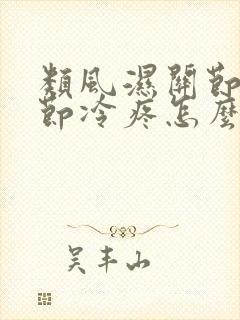 類風濕關節
節冷疼怎麼
吴丰山